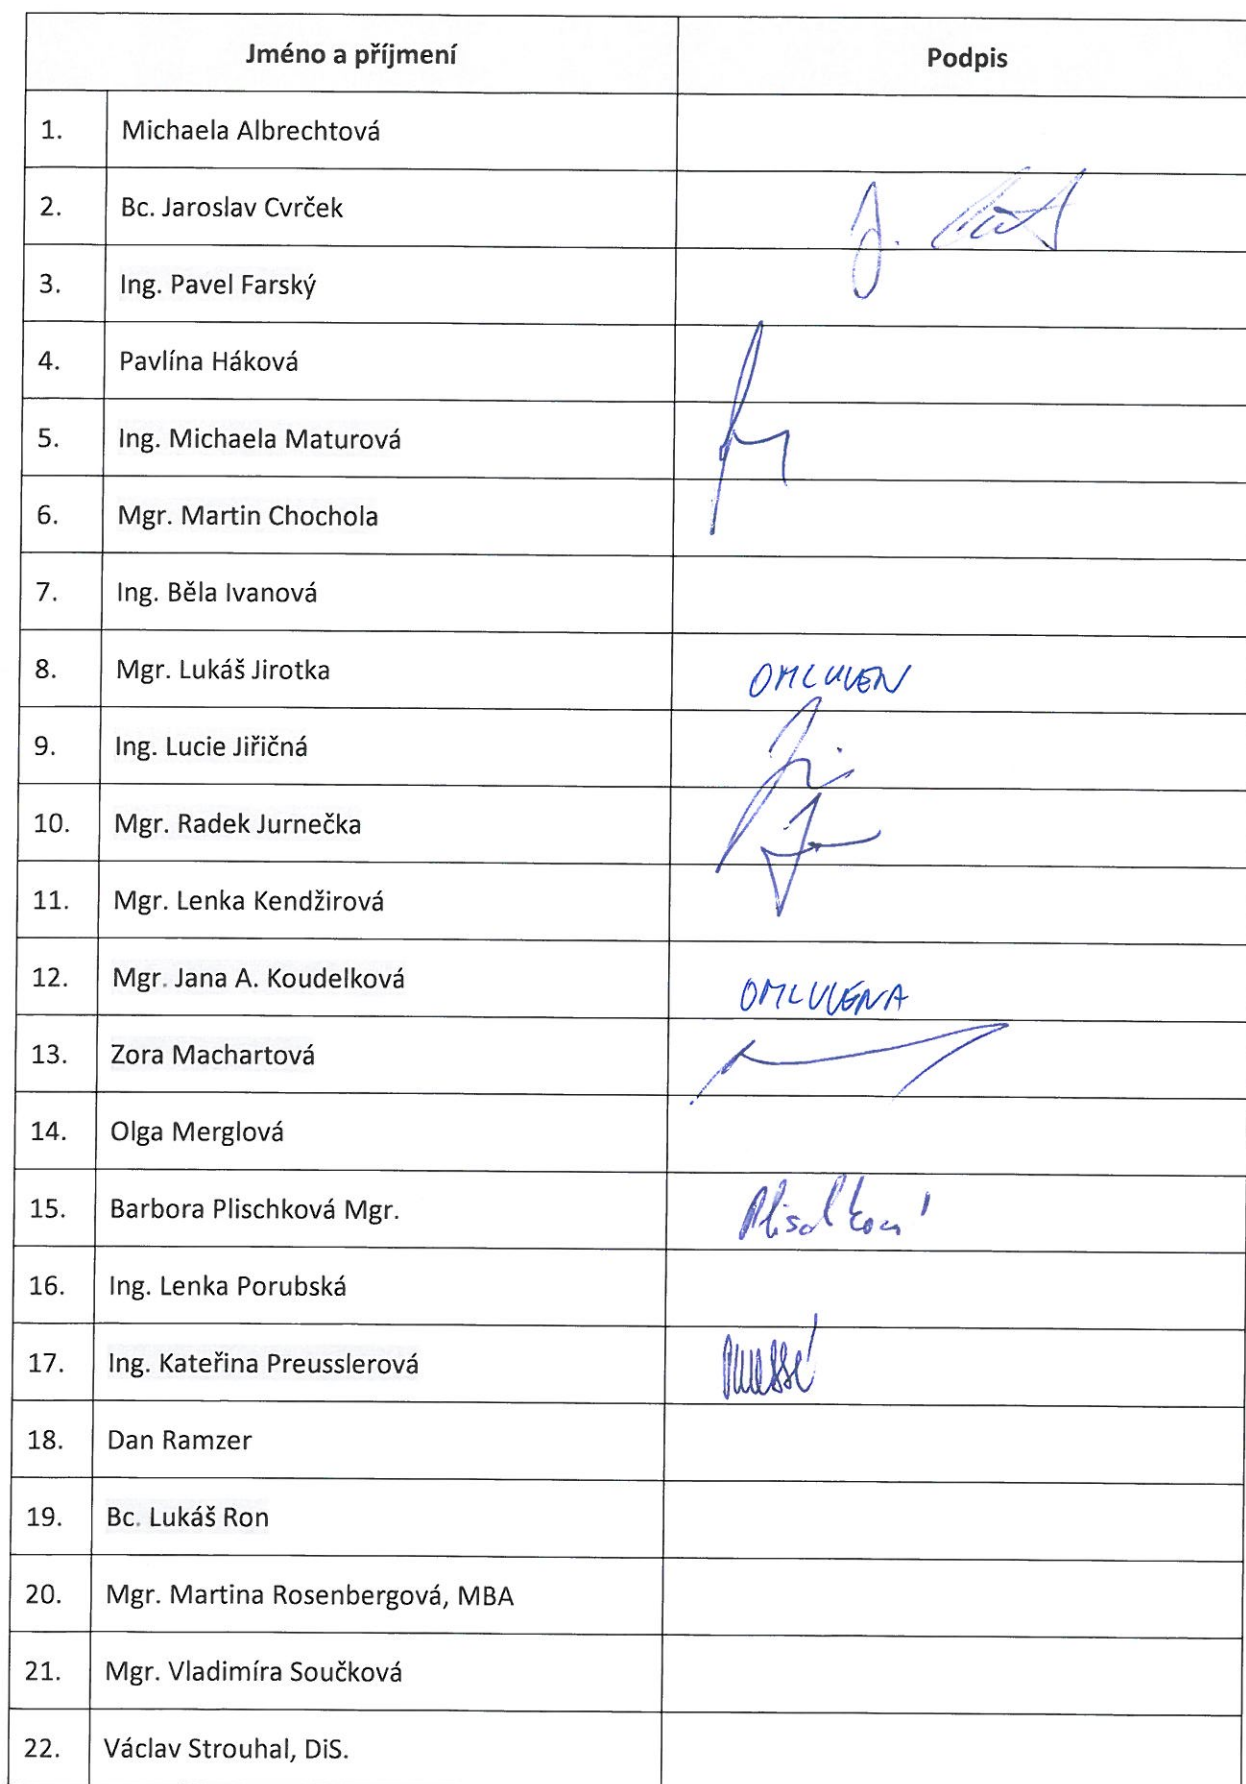 Jméno a příjmení Podpis
1. Michaela Albrechtová
2. Bc. Jaroslav Cvrček
3. Ing. Pavel Farský
4. Pavlína Háková
5. Ing. Michaela Maturová
6. Mgr. Martin Chochola
7. Ing. Běla Ivanová
8. Mgr. Lukáš Jirotka OMLUVEN
9. Ing. Lucie Jiřičná
10. Mgr. Radek Jurnečka
11. Mgr. Lenka Kendžirová
12. Mgr. Jana A. Koudelková OMLUVENA
13. Zora Machartová
14. Olga Merglová
15. Barbora Plischková Mgr.
16. Ing. Lenka Porubská
17. Ing. Kateřina Preusslerová
18. Dan Ramzer
19. Bc. Lukáš Ron
20. Mgr. Martina Rosenbergová, MBA
21. Mgr. Vladimíra Součková
22. Václav Strouhal, DiS.